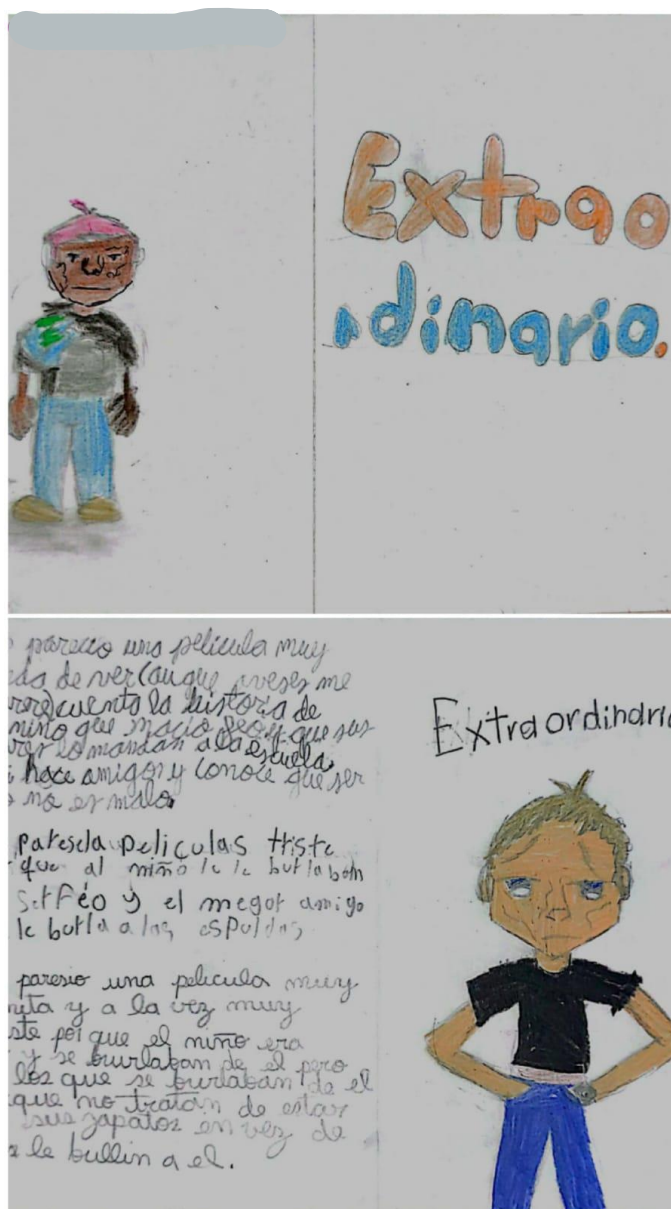 Extrao
rdinario.
parecio una pelicula muy
da de ver (auque aveses me
cuenta la historia de
niño que nacio feo y que sus
lo mandan a la escuela
hace amigos y conoce que ser
no es malo.
Extraordinari
paresela peliculas triste
que al niño le le burlabam
Ser Féo y el megor amigo
le burla a las espuldas
paresio una pelicula muy
nita y a la vez muy
ste porque el niño era
y se burlaban de el pero
los que se burlaban de el
que no tratan de estar
sus zapatos en vez de
le bullin a el.